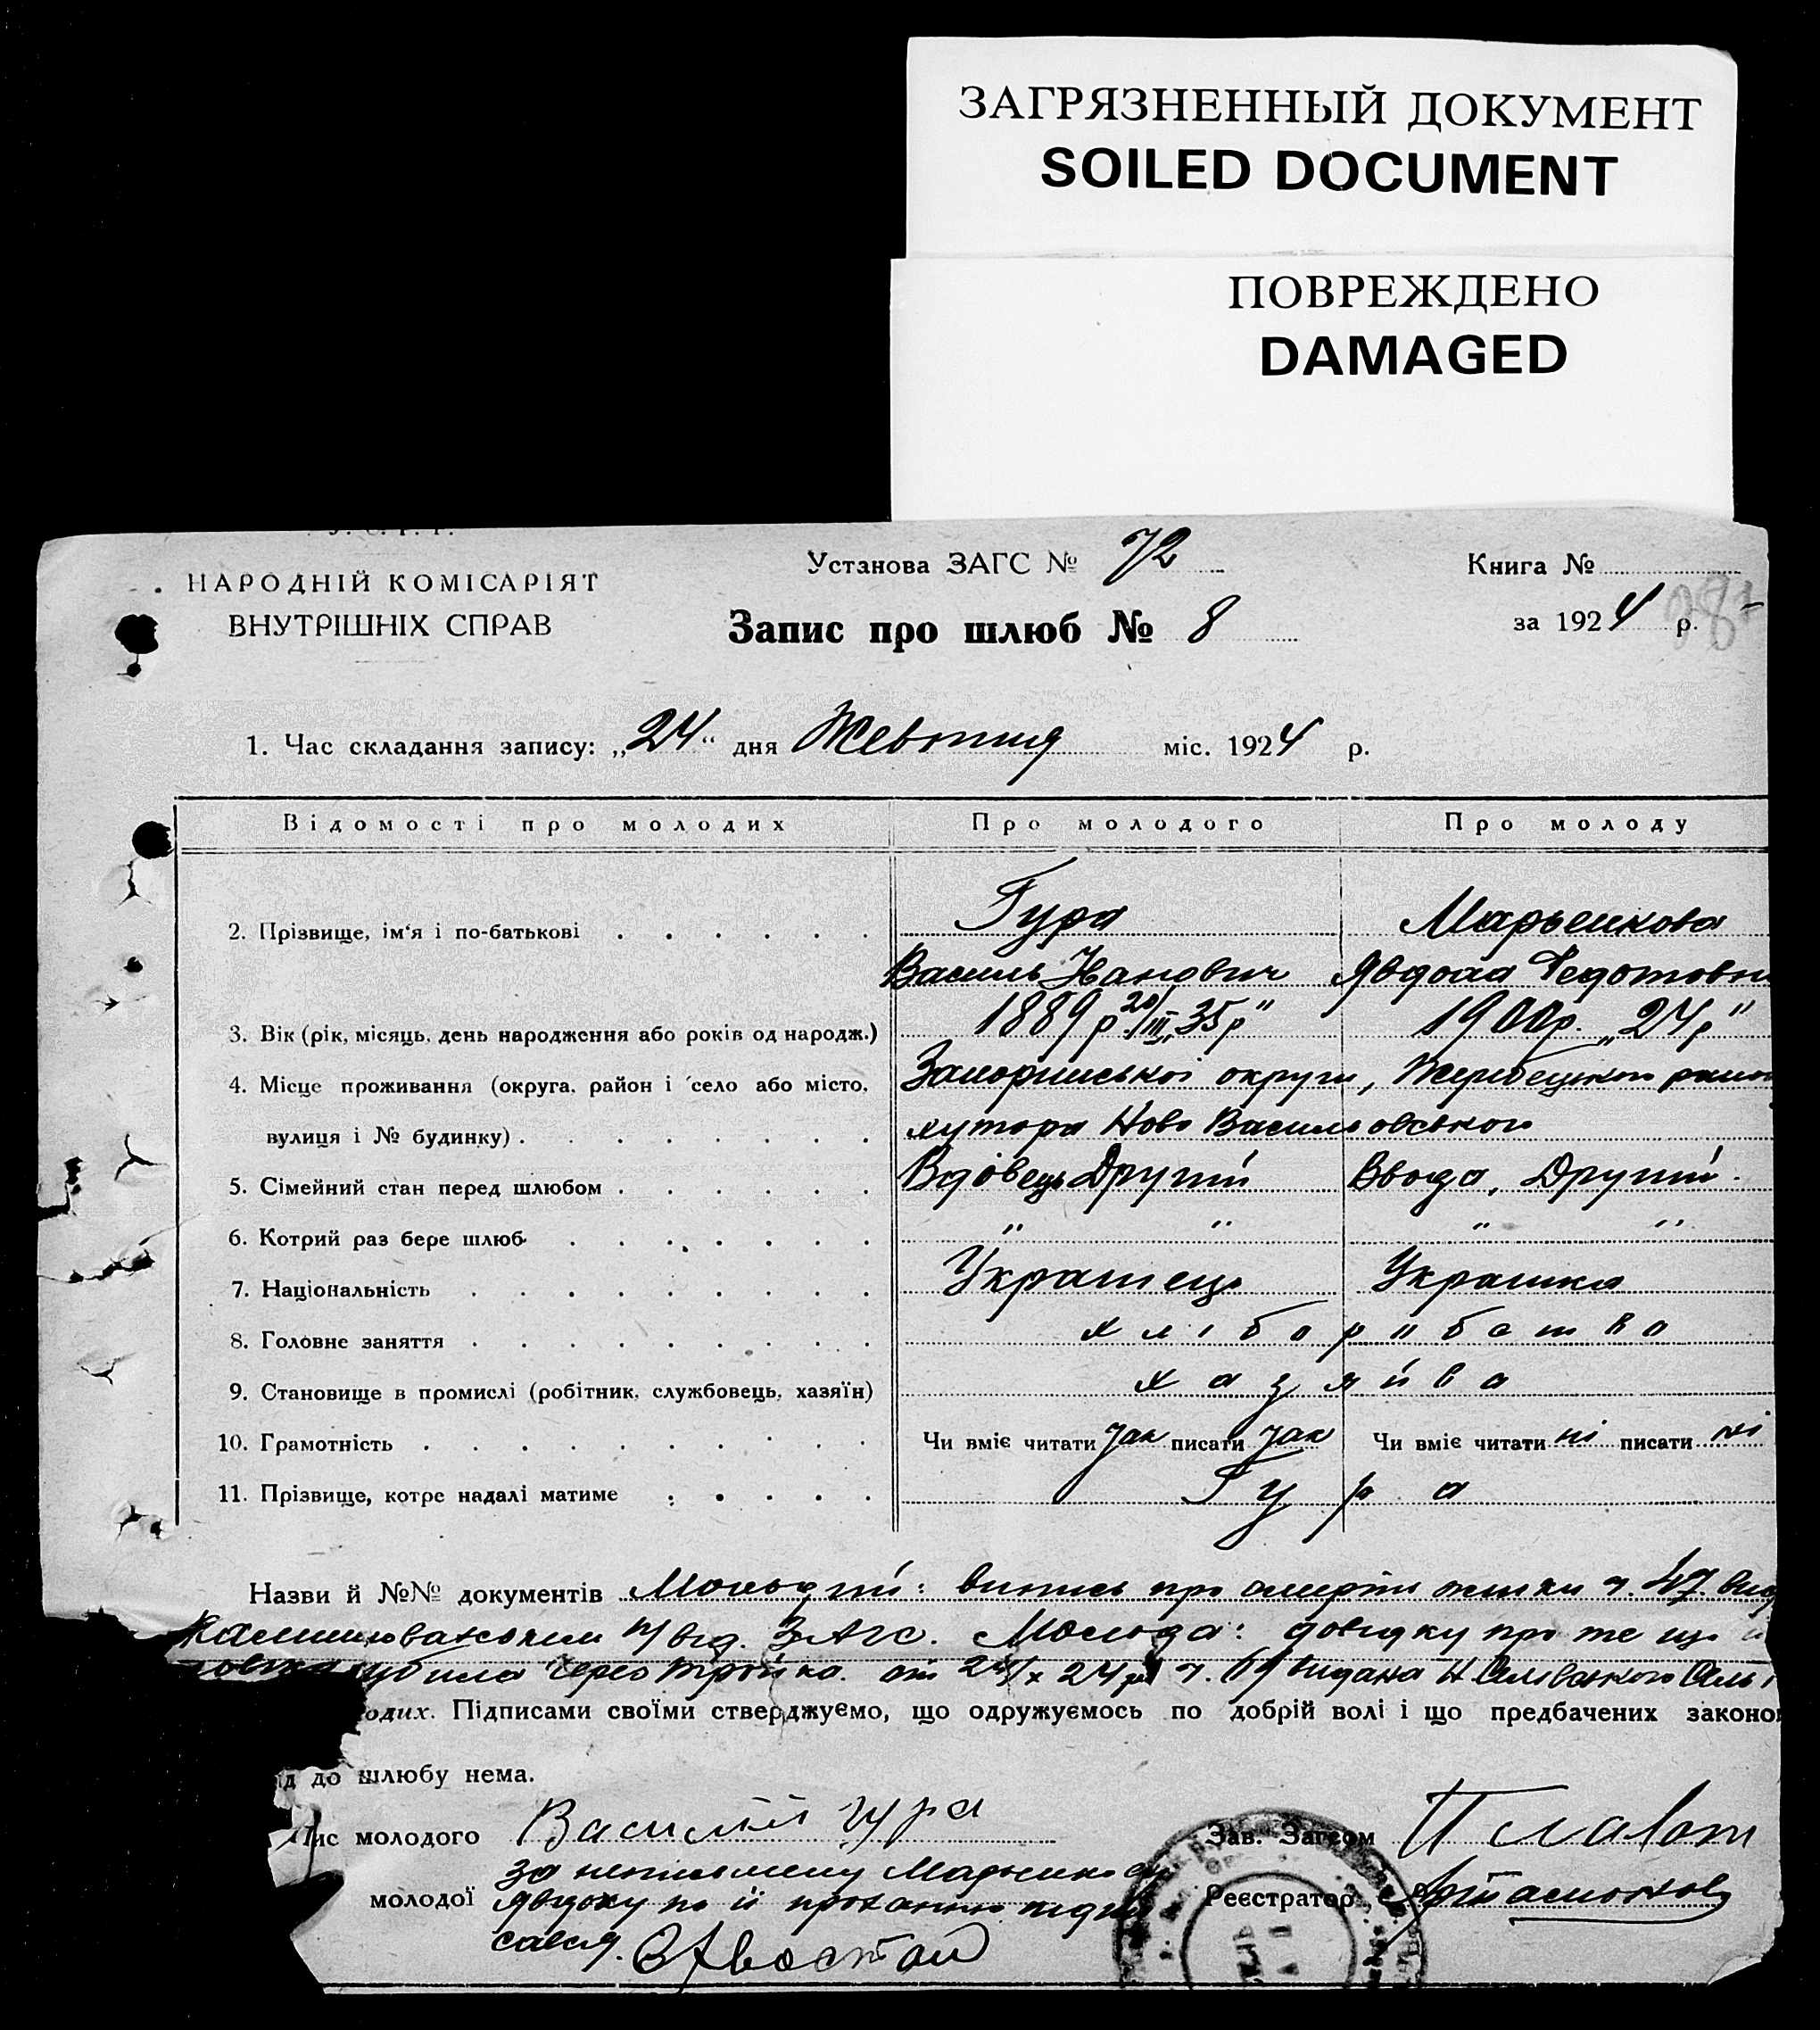 ЗАГРЯЗНЕННЫЙ ДОКУМЕНТ
SOILED DOCUMENT
ПОВРЕЖДЕНО
DAMAGED
НАРОДНІЙ КОМІСАРІЯТ
ВНУТРІШНІХ СПРАВ
Установа ЗАГС № 72
Книга №
Запис про шлюб № 8
за 1924 р.
1. Час складання запису: „24“ дня Жевтня міс. 1924 р.
Відомості про молодих Про молодого Про молоду
2. Прізвище, ім'я і по-батькові Гура Марьенкова
Василь Іванович Явдоха Федотовна
3. Вік (рік, місяць, день народження або років од народж.) 1889 р. 20/III „35р“ 1900р. „24р“
4. Місце проживання (округа, район і село або місто, Запоріжської округи, Жеребецького район
вулиця і № будинку) хутора Ново Васильовського
5. Сімейний стан перед шлюбом Вдовець Другий Вдова, Другий.
6. Котрий раз бере шлюб " " " "
7. Національність Українець Українка
8. Головне заняття хліборобство
9. Становище в промислі (робітник, службовець, хазяїн) хазяйва
10. Грамотність Чи вміє читати так писати так Чи вміє читати ні писати ні
11. Прізвище, котре надалі матиме Гура
Назви й №№ документів Молодий: випись про смерть жінки ч. 47. вид
ЗАГС. Молода: довідку про те що
24 р. ч. видана
одих. Підписами своїми стверджуємо, що одружуємось по добрій волі і що предбачених законо
д до шлюбу нема.
пис молодого Василій Гура Зав. Загсом
за неписьмену Марьенкову
молодої Явдоху по її проханню підпи Реєстратор
сався.